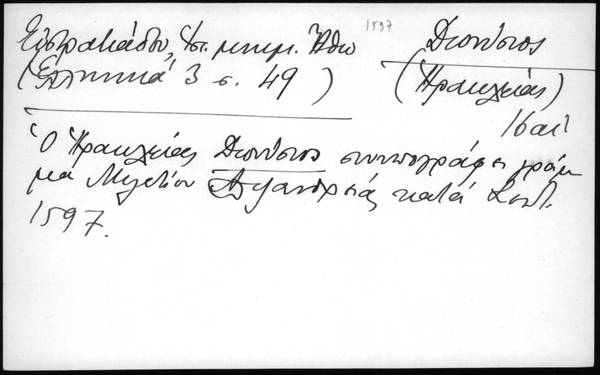 Εὐστρατιάδου, Ἱστ. μνημ. Ἄθω
1597
Διονύσιος
(Ἑλληνικά 3 σ. 49)
(Ἡρακλείας)
16 αἰ
Ὁ Ἡρακλείας Διονύσιος συνυπογράφει γράμ
μα Μελετίου Ἀλεξανδρείας κατά Σεπτ.
1597.